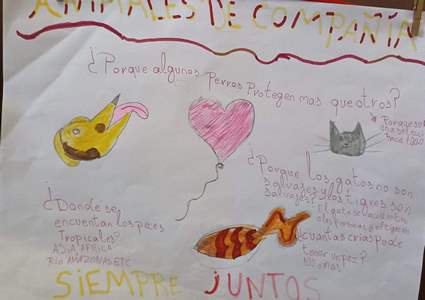 ANIMALES DE COMPAÑÍA
¿Porque algunos perros protegen mas que otros?
Porque son
¿Porque los gatos no son
salvajes y los tigres son
salvajes?
¿Donde se
encuentan los peces
Tropicales?
ASIA AFRICA
RIO AMAZONAS ETC
¿cuantas crias puede
tener un pez?
SIEMPRE JUNTOS